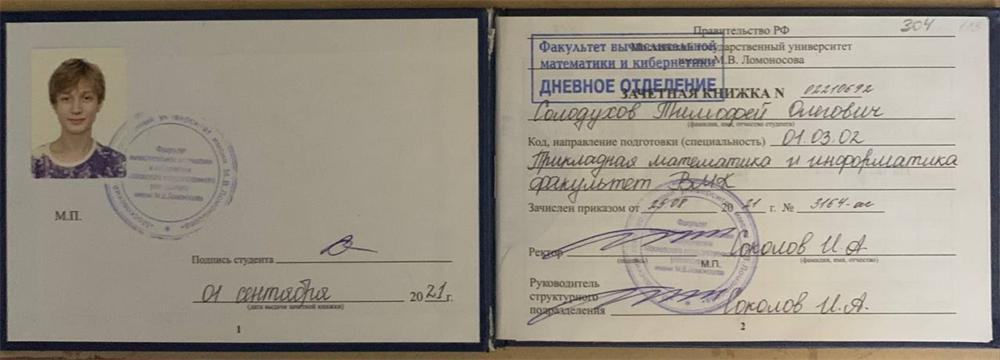 Факультет
вычислительной математики
и кибернетики
Московского государственного
университета
имени М.В.Ломоносова
М.П.
Подпись студента
01 сентября 2021 г.
(дата выдачи зачетной книжки)
1
304
Правительство РФ
Московский государственный университет
имени М.В. Ломоносова
Факультет вычислительной
математики и кибернетики
ДНЕВНОЕ ОТДЕЛЕНИЕ
ЗАЧЕТНАЯ КНИЖКА N 02210692
Солодухов Тимофей Олегович
(фамилия, имя, отчество студента)
Код, направление подготовки (специальность) 01.03.02
Прикладная математика и информатика
факультет ВМК
Зачислен приказом от 25.08 2021 г. № 3164-ас
Ректор Соколов И.А.
(подпись) М.П. (фамилия, имя, отчество)
Руководитель
структурного
подразделения Соколов И.А.
2